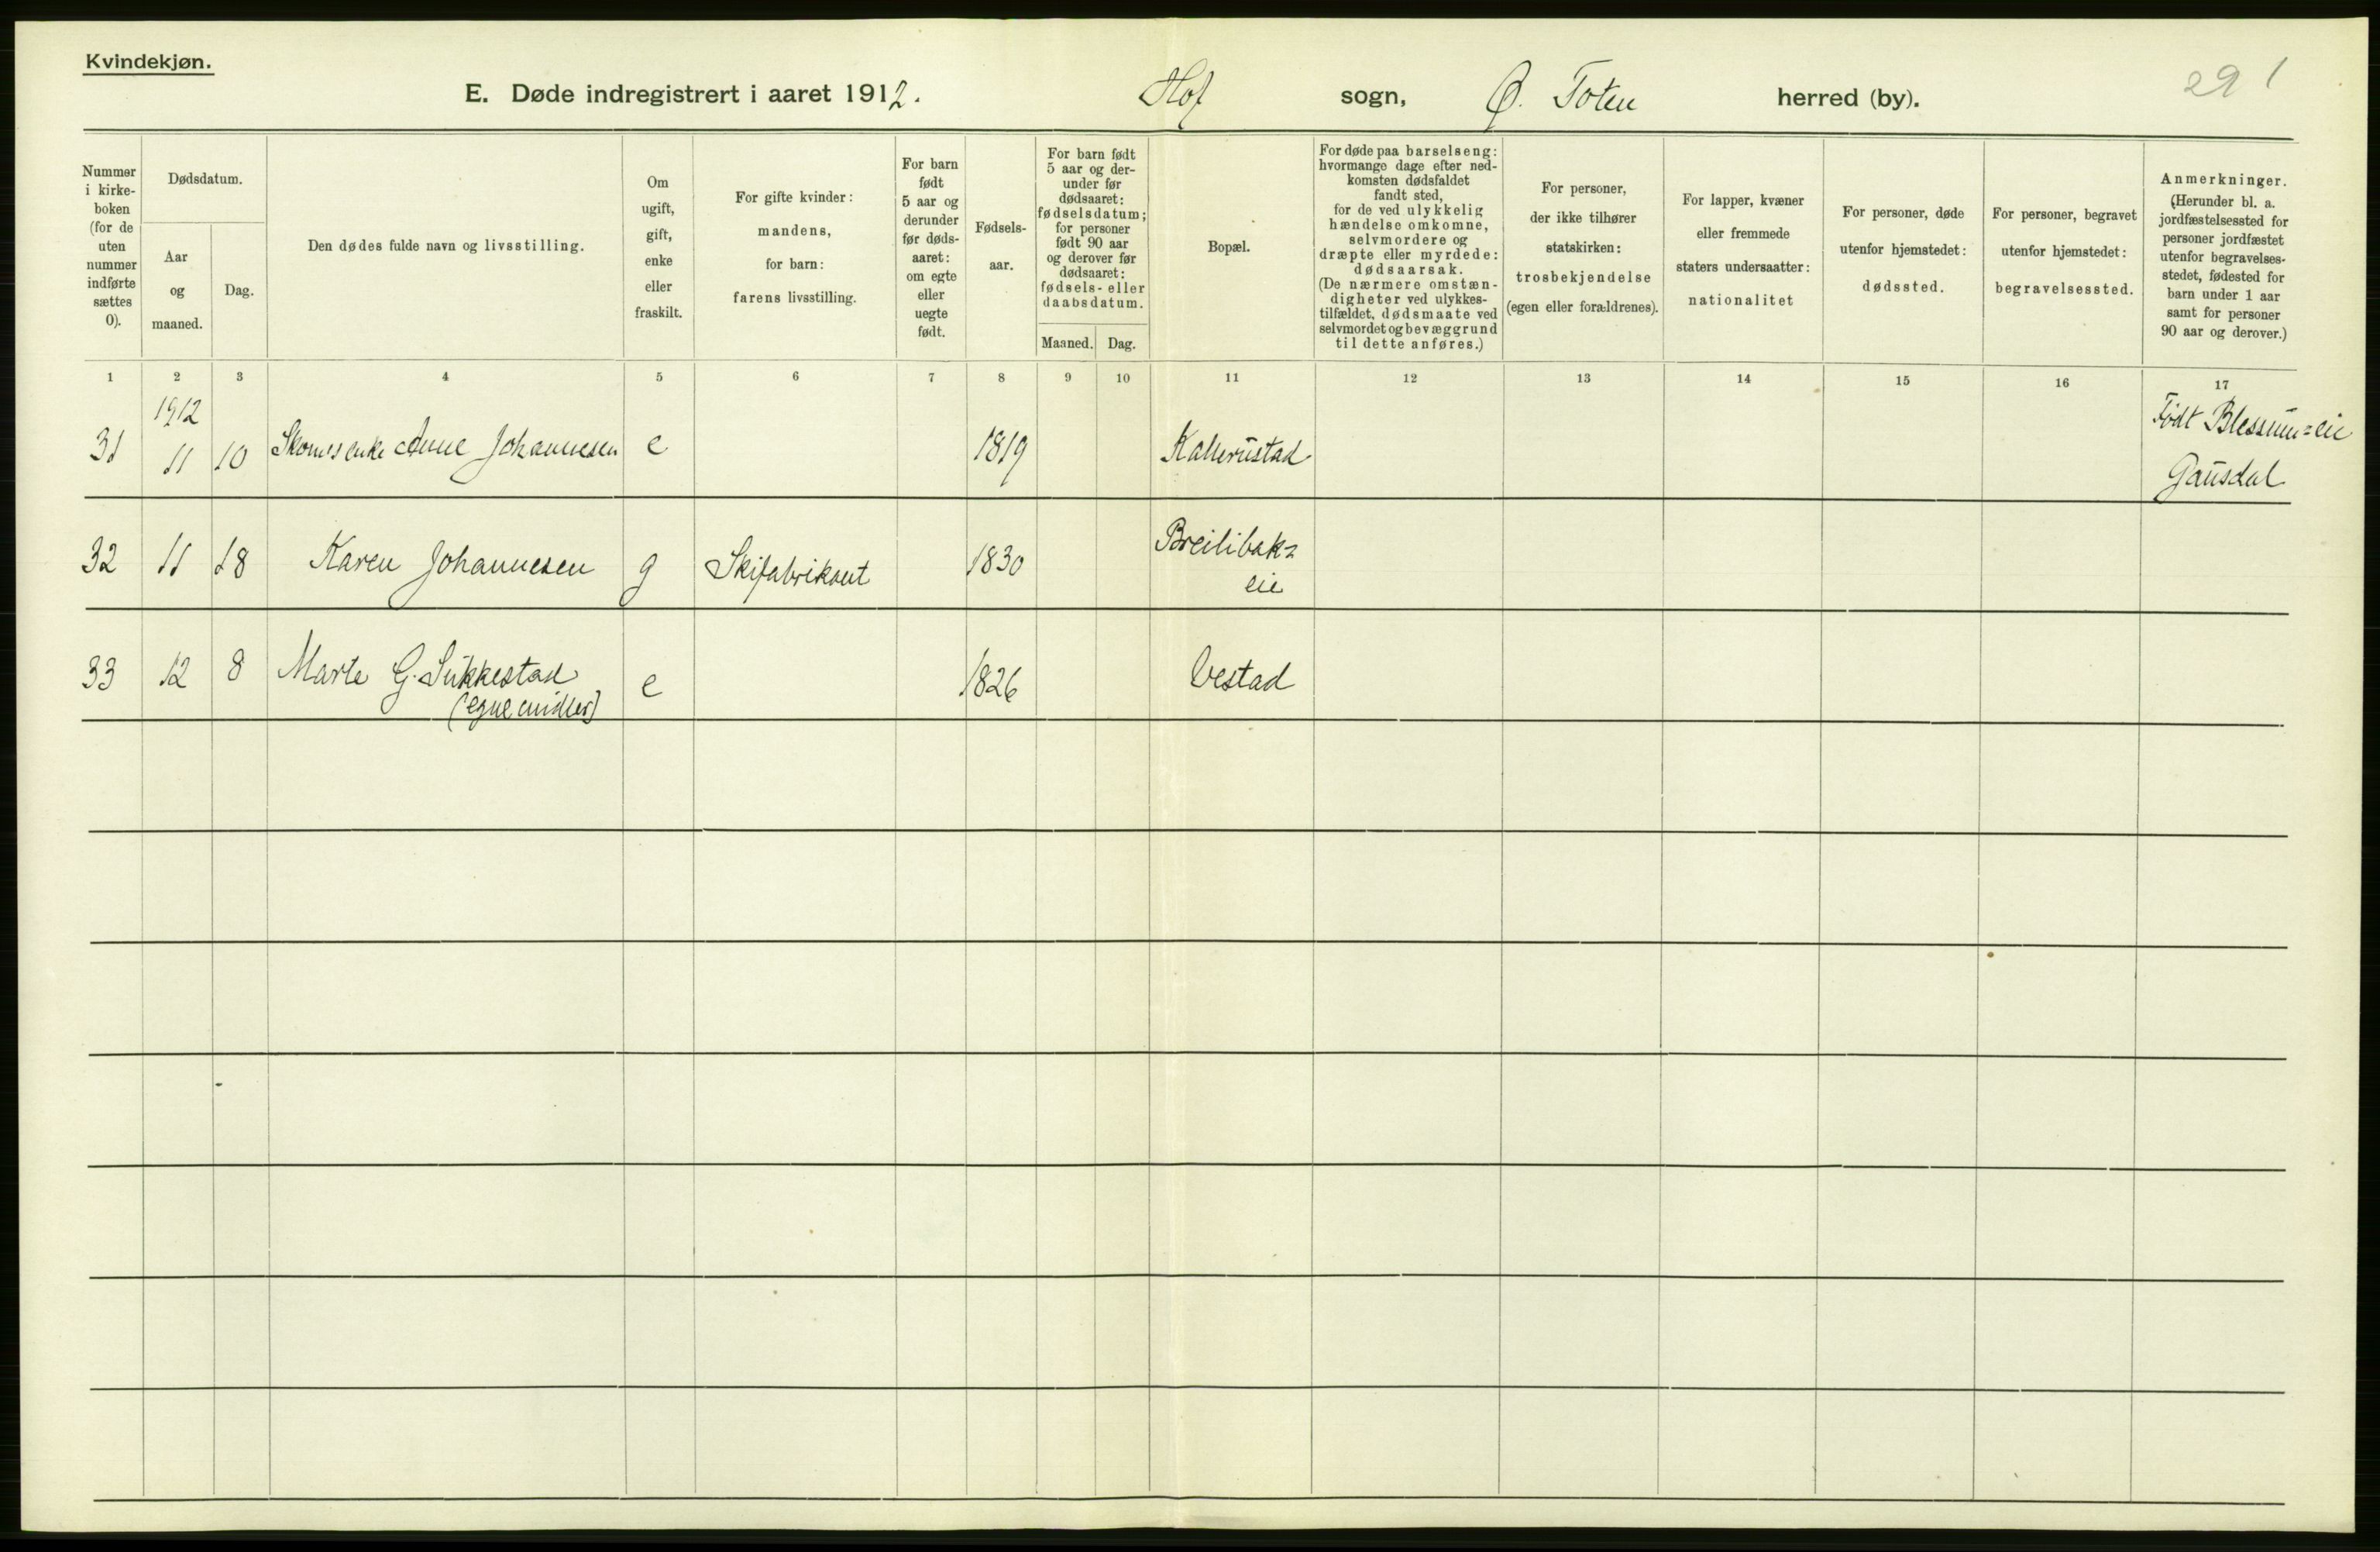 Kvindekjøn.
E. Døde indregistrert i aaret 1912. Hof sogn, Ø. Toten herred (by). 291
Nummer i kirke-boken (for de uten nummer indførte sættes 0).
Dødsdatum.
Aar og maaned.
Dag.
Den dødes fulde navn og livsstilling.
Om ugift, gift, enke eller fraskilt.
For gifte kvinder: mandens, for barn: farens livsstilling.
For barn født 5 aar og derunder før døds-aaret: om egte eller uegte født.
Fødsels-aar.
For barn født 5 aar og der-under før dødsaaret: fødselsdatum; for personer født 90 aar og derover før dødsaaret: fødsels- eller daabsdatum.
Maaned. Dag.
Bopæl.
For døde paa barselseng: hvormange dage efter ned-komsten dødsfaldet fandt sted, for de ved ulykkelig hændelse omkomne, selvmordere og dræpte eller myrdede: dødsaarsak. (De nærmere omstæn-digheter ved ulykkes-tilfældet, dødsmaate ved selvmordet og bevæggrund til dette anføres.)
For personer, der ikke tilhører statskirken: trosbekjendelse (egen eller forældrenes).
For lapper, kvæner eller fremmede staters undersaatter: nationalitet
For personer, døde utenfor hjemstedet: dødssted.
For personer, begravet utenfor hjemstedet: begravelsessted.
Anmerkninger. (Herunder bl. a. jordfæstelsessted for personer jordfæstet utenfor begravelses-stedet, fødested for barn under 1 aar samt for personer 90 aar og derover.)
1 2 3 4 5 6 7 8 9 10 11 12 13 14 15 16 17
1912
31 11 10 enke Anne Johannesen e 1819 Kallerustad Født Blessum=eie
Gausdal
32 11 18 Karen Johannesen g Skifabrikant 1830 Breilibak=
eie
33 12 8 Marte G. Sukkestad e 1826 Vestad
(egne midler)